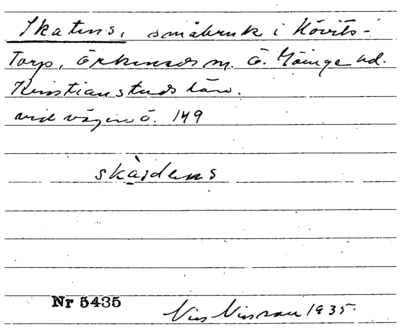 Skatens, småbruk i Hövits-
torp, Örkeneds sn. Ö. Göinge hd.
Kristianstads län.
vid vägen ö. 149
skàtdens
Nr 5435
Nils Nilsson 1935.